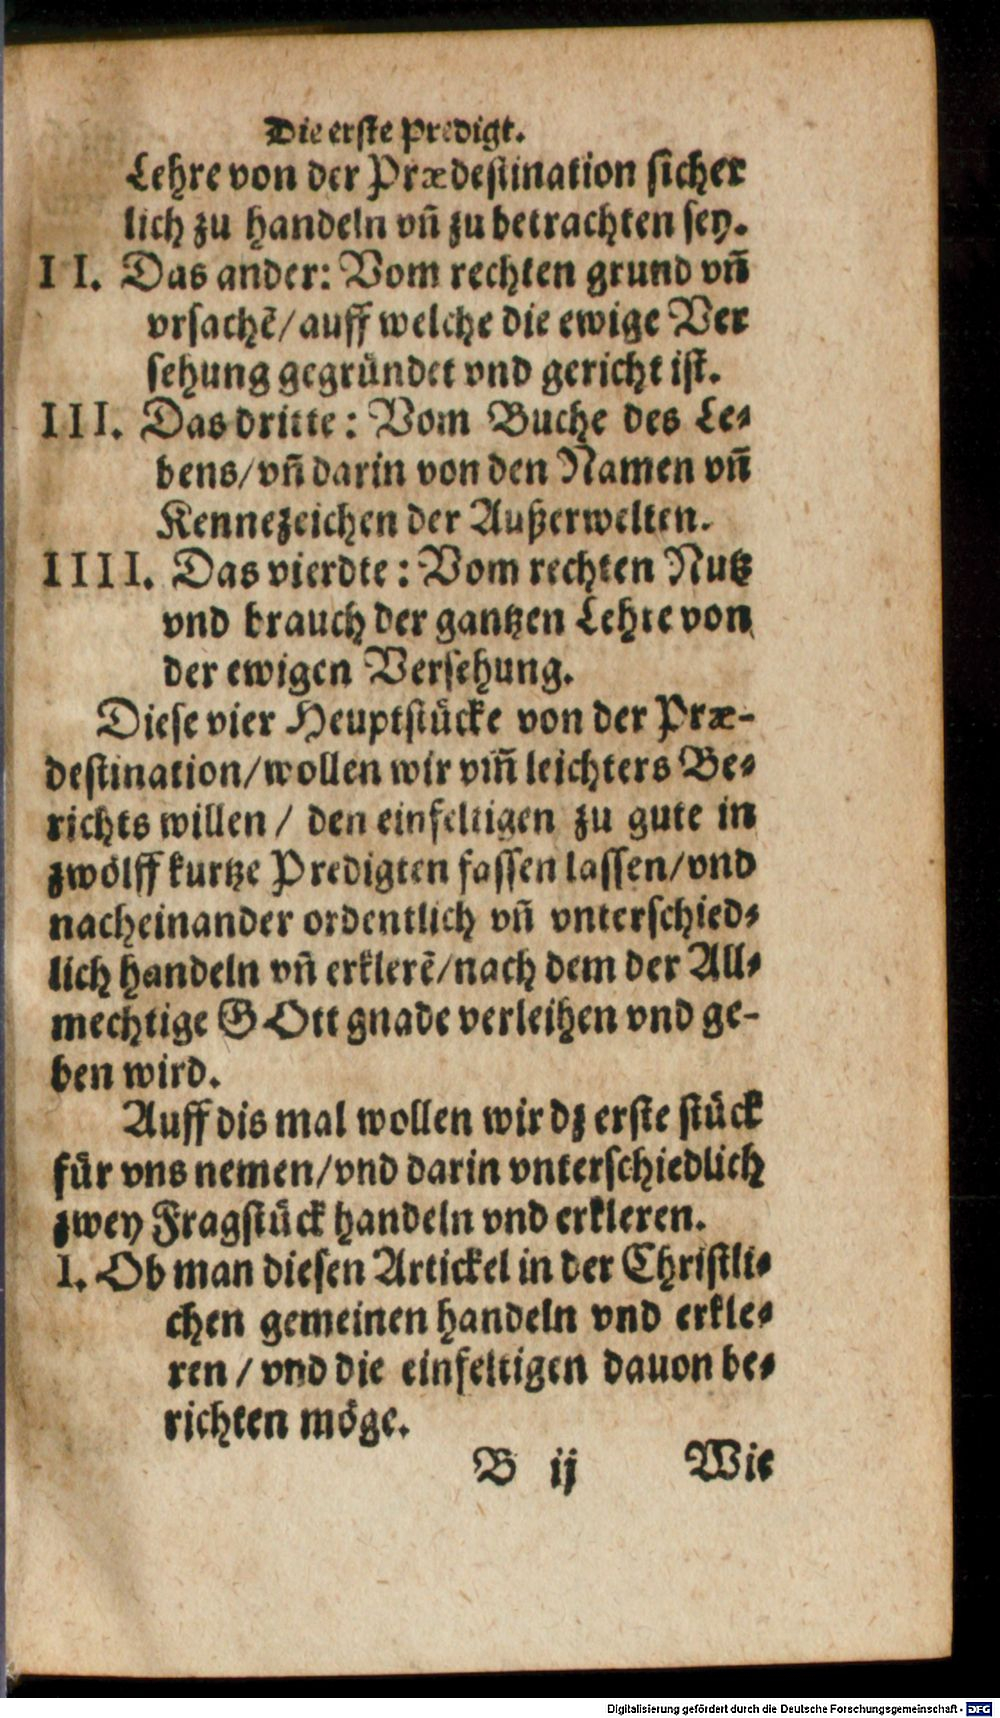 Die erste Predigt.
Lehre von der Prædestination sicher
lich zu handeln vn̄ zu betrachten sey.
II. Das ander: Vom rechten grund vn̄
vrsachē/auff welche die ewige Ver
sehung gegründet vnd gericht ist.
III. Das dritte: Vom Buche des Le-
bens/vn̄ darin von den Namen vn̄
Kennezeichen der Außerwelten.
IIII. Das vierdte: Vom rechten Nutz
vnd brauch der gantzen Lehre von
der ewigen Versehung.
Diese vier Heuptstücke von der Præ-
destination/wollen wir vm̄ leichters Be-
richts willen/ den einfeltigen zu gute in
zwölff kurtze Predigten fassen lassen/vnd
nacheinander ordentlich vn̄ vnterschied-
lich handeln vn̄ erklerē/nach dem der All-
mechtige GOtt gnade verleihen vnd ge-
ben wird.
Auff dis mal wollen wir dz erste stück
für vns nemen/vnd darin vnterschiedlich
zwey Fragstück handeln vnd erkleren.
I. Ob man diesen Artickel in der Christli-
chen gemeinen handeln vnd erkle-
ren/vnd die einfeltigen dauon be-
richten möge.
B ij Wie
Digitalisierung gefördert durch die Deutsche Forschungsgemeinschaft - DFG